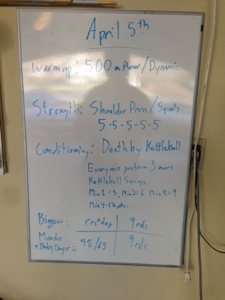 April 5th
Warmup: 500m Row / Dynamic
Strength: Shoulder Press / Squats
5-5-5-5-5
Conditioning: Death by Kettlebell
Every min perform 3 more
Kettlebell Swings.
Min 1 = 3, Min 2 = 6 Min 3 = 9
Min 4
Biggen: rest day 9 rds
45/63 9 rds